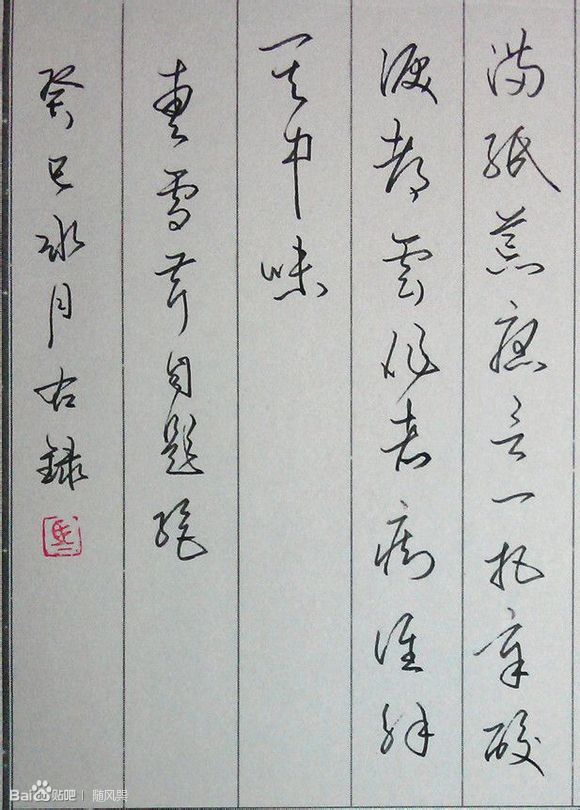 满紙荒唐言一把辛酸
淚都雲作者痴谁解
其中味
曹雪芹自題绝
癸巳冰月右録
Bai贴吧 | 随风